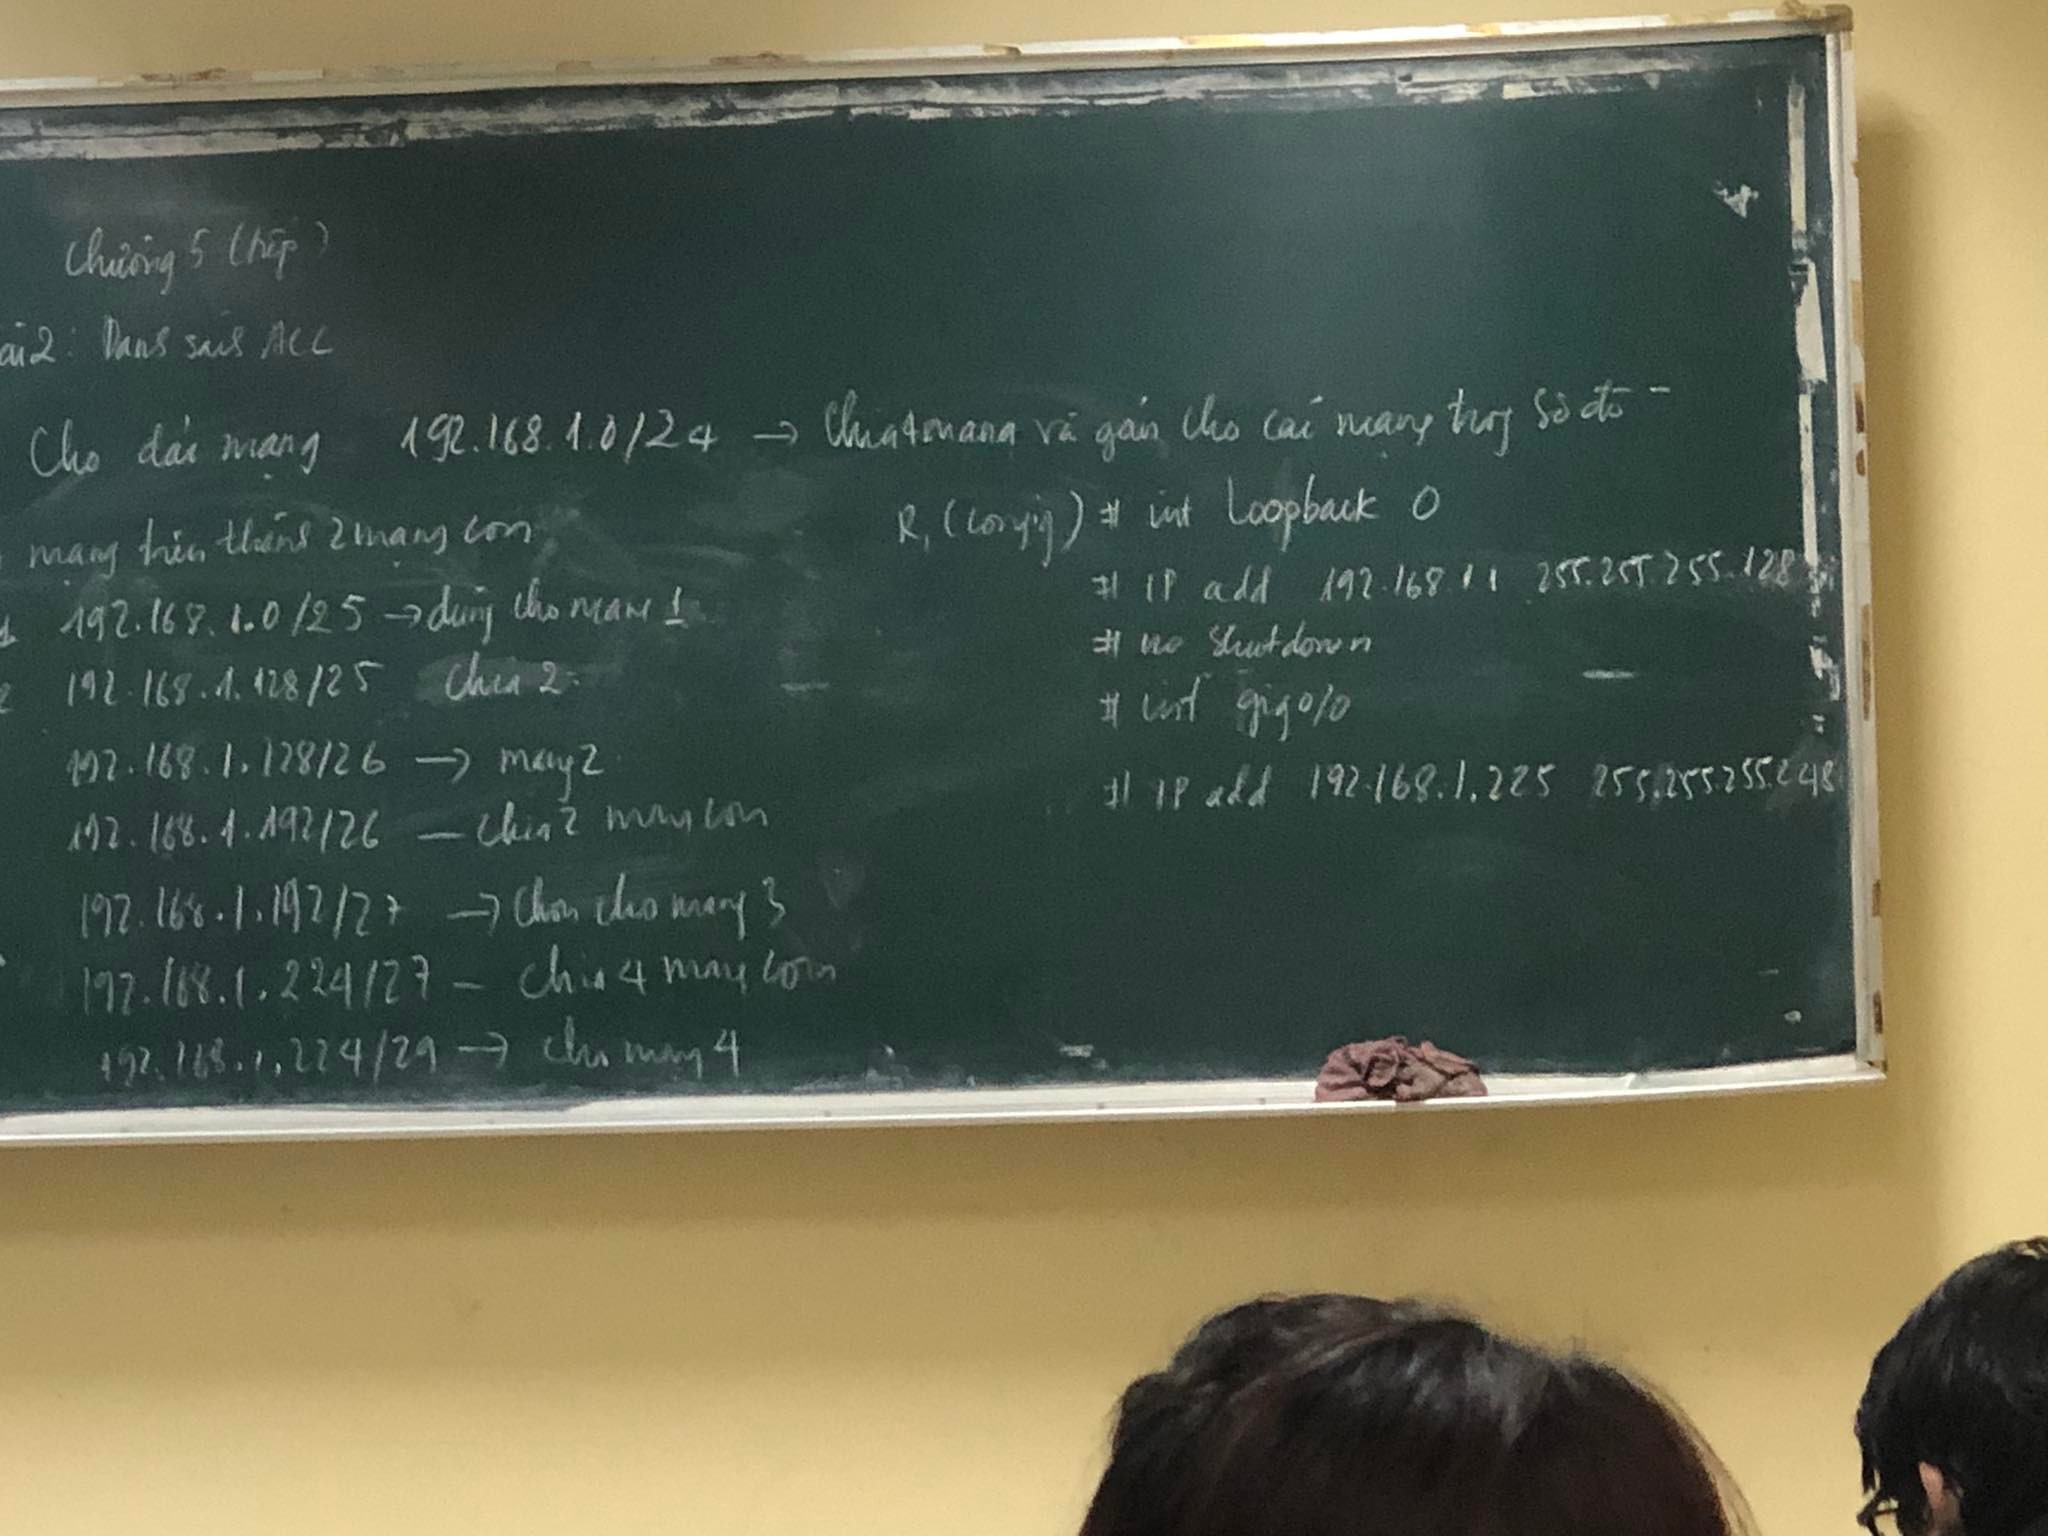 Chương 5 (tiếp)
ài 2: Danh sách ACL
Cho dải mạng 192.168.1.0/24 → Chia 4 mạng và gán cho các mạng trong sơ đồ
mạng trên thành 2 mạng con
1 192.168.1.0/25 → dùng cho mạng 1
2 192.168.1.128/25 chia 2
192.168.1.128/26 → mạng 2
192.168.1.192/26 – chia 2 mạng con
192.168.1.192/27 → Chọn cho mạng 3
192.168.1.224/27 – chia 4 mạng con
192.168.1.224/29 → cho mạng 4
R1 (config) # int Loopback 0
# IP add 192.168.1.1 255.255.255.128
# no shutdown
# int gig0/0
# IP add 192.168.1.225 255.255.255.248